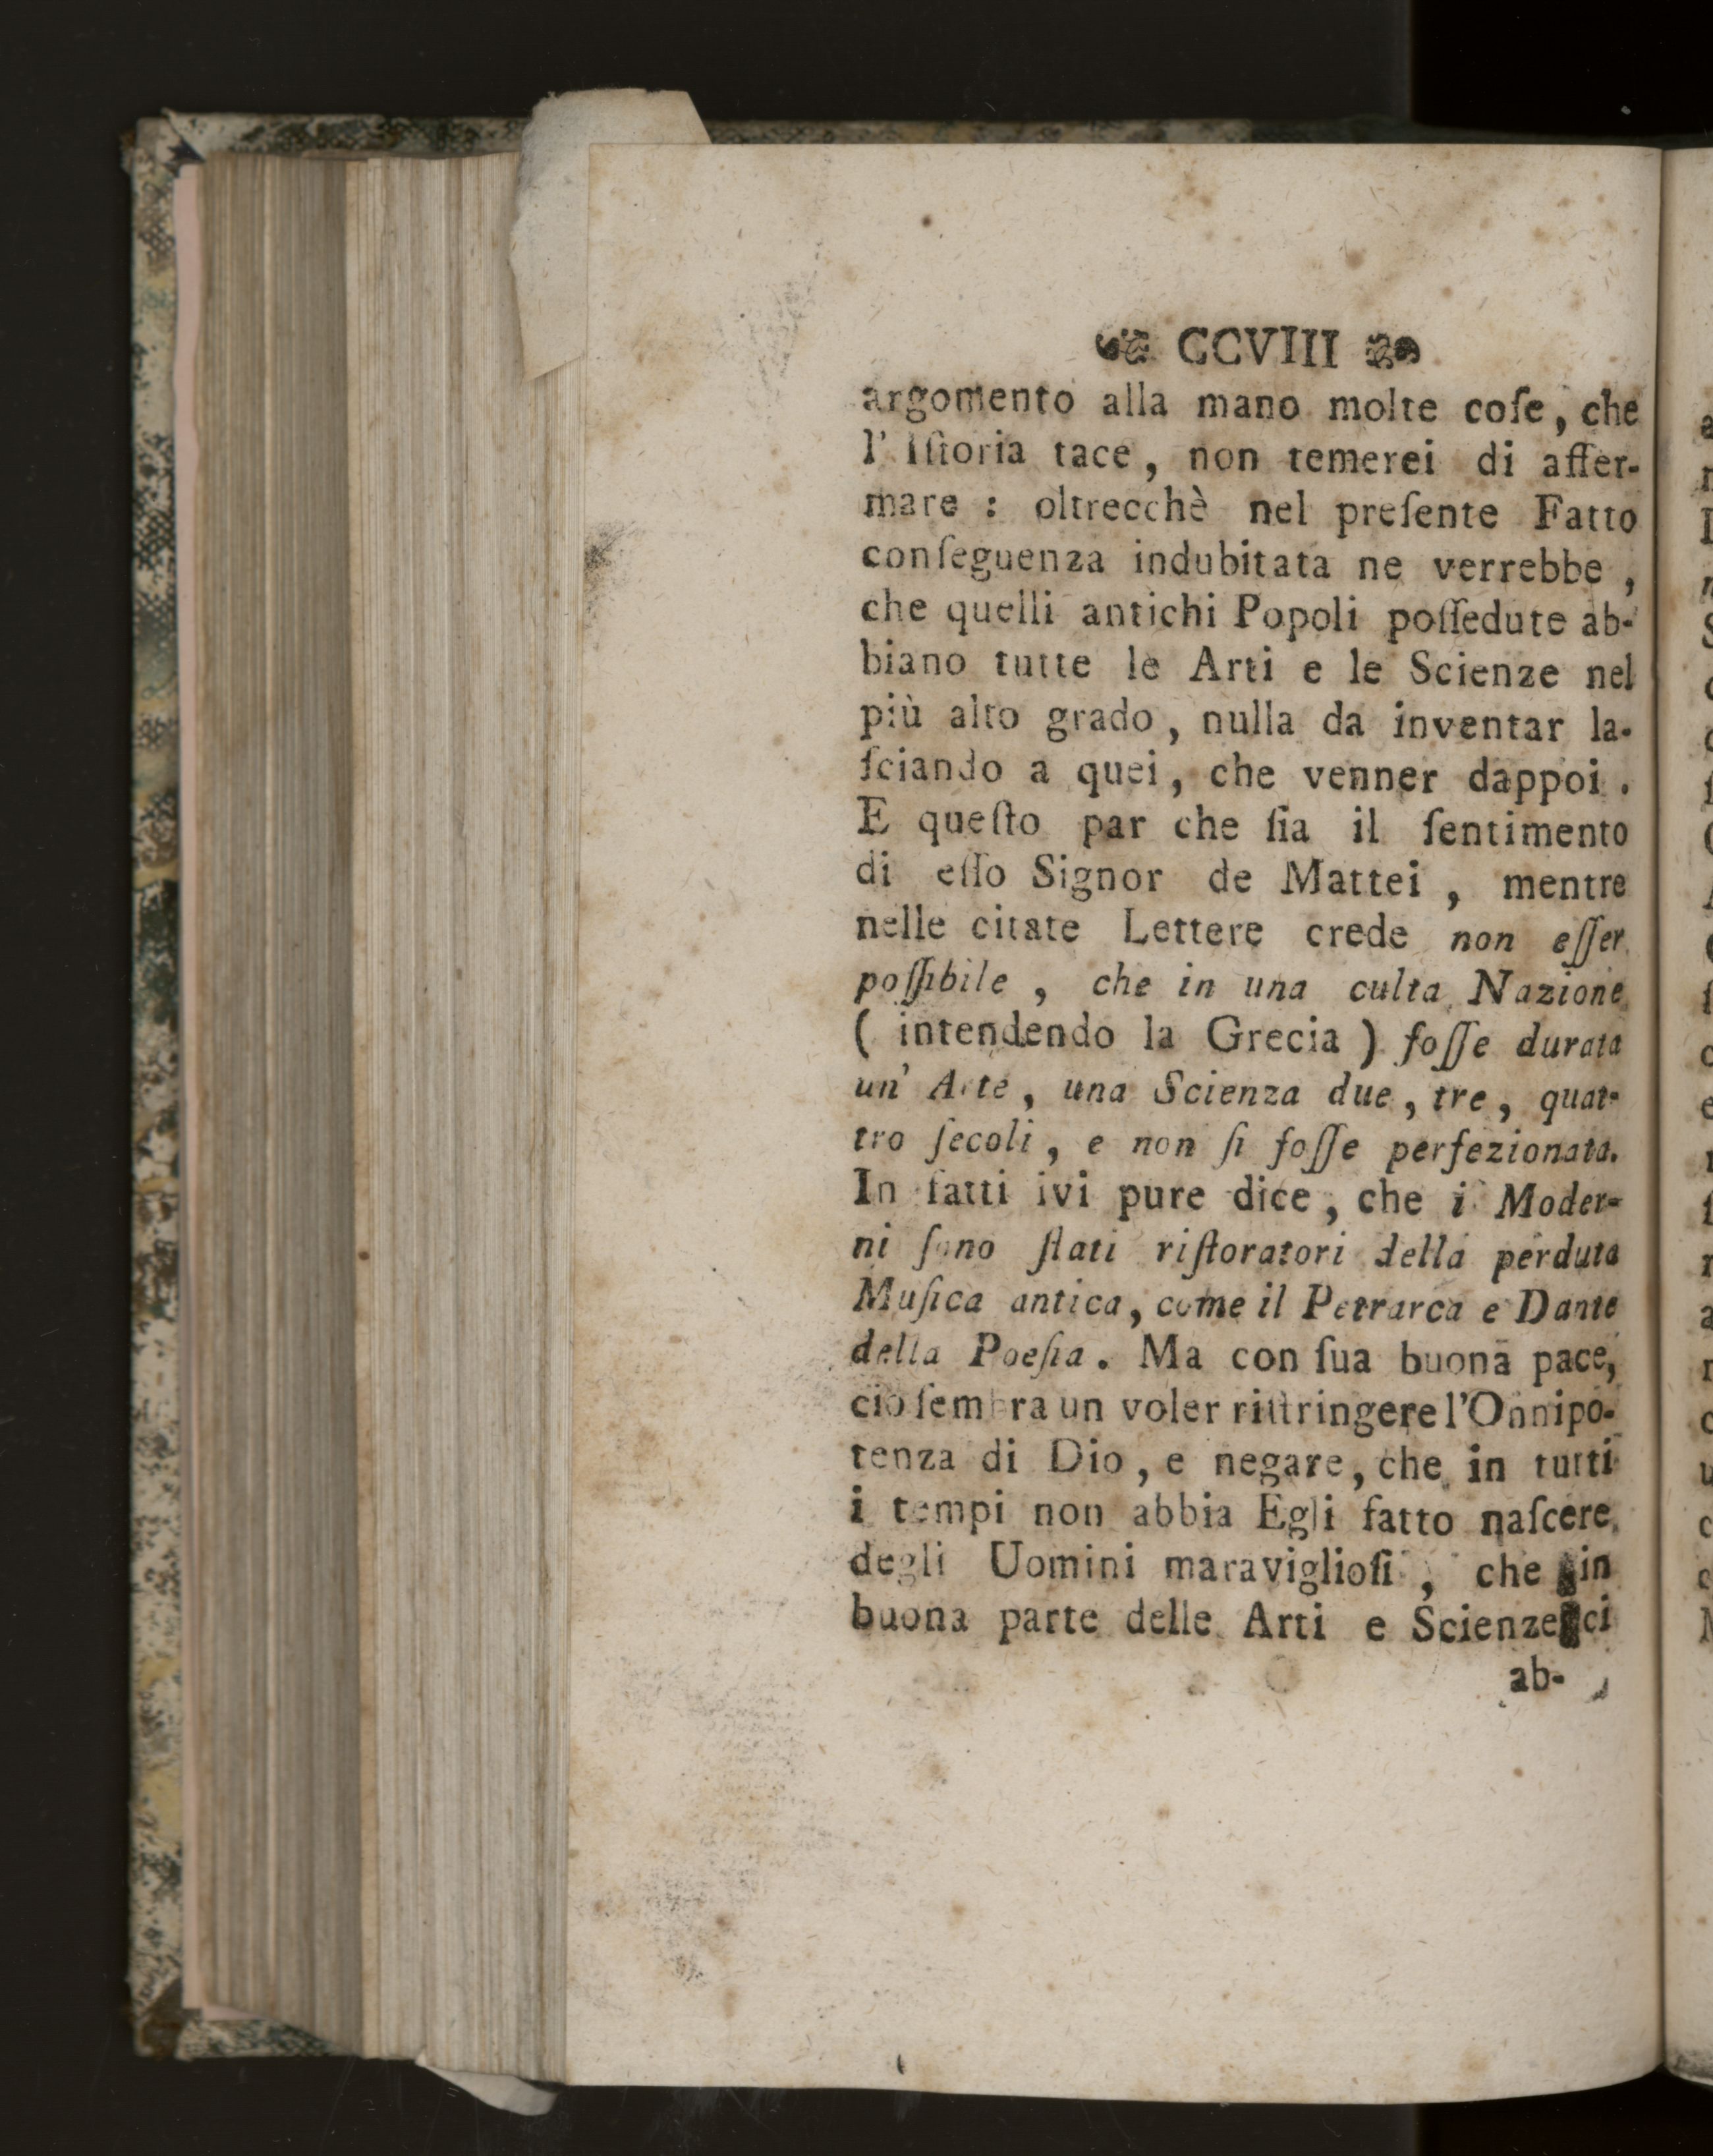 CCVIII
argomento alla mano molte coſe, che
l' Iſtoria tace, non temerei di aſſer-
mare : oltrecchè nel preſente Fatto
conſeguenza indubitata ne verrebbe ,
che quelli antichi Popoli poſſedute ab-
biano tutte le Arti e le Scienze nel
più alto grado, nulla da inventar la-
ſciando a quei, che venner dappoi .
E queſto par che ſia il ſentimento
di eſſo Signor de Mattei , mentre
nelle citate Lettere crede non eſſer
poſſibile , che in una culta Nazione
( intendendo la Grecia ) foſſe durata
un' Arte, una Scienza due, tre, quat-
tro ſecoli, e non ſi foſſe perfezionata.
In fatti ivi pure dice, che i Moder-
ni ſono ſtati riſtoratori della perduta
Muſica antica, come il Petrarca e Dante
della Poeſia. Ma con ſua buona pace,
ciò ſembra un voler riſtringere l'Onnipo-
tenza di Dio, e negare, che in tutti
i tempi non abbia Egli fatto naſcere
degli Uomini maraviglioſi , che in
buona parte delle Arti e Scienze ci
ab-